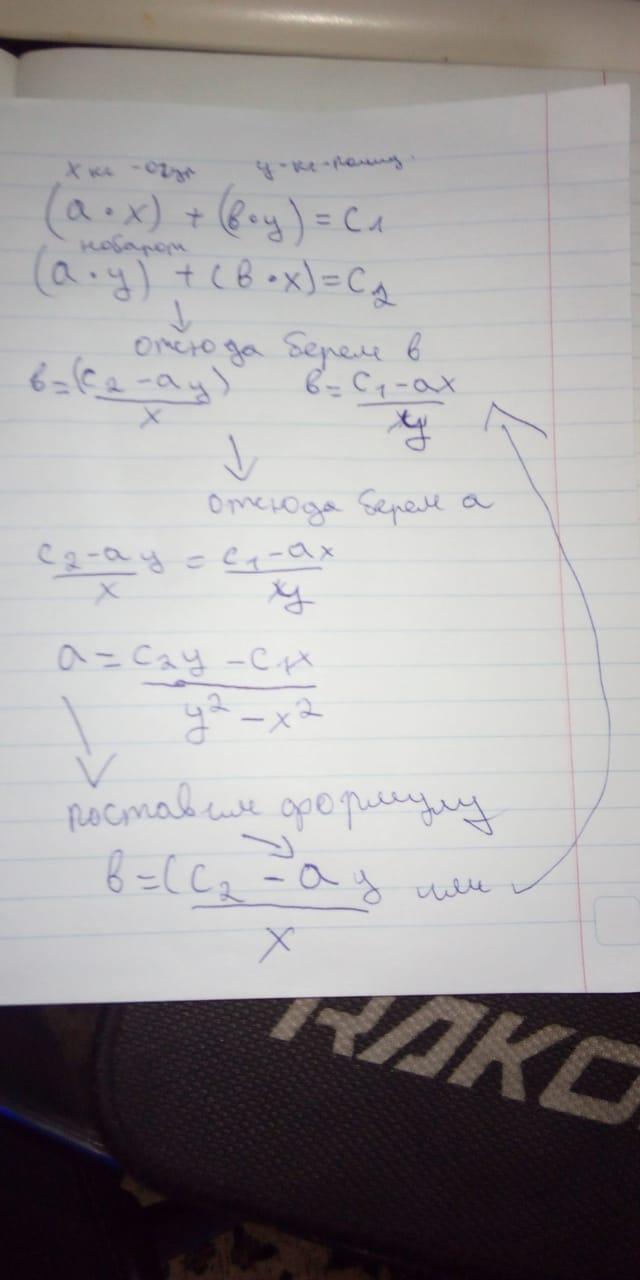 x кг - огур y - кг - помид.
(a · x) + (в · y) = c1
наоборот
(a · y) + (в · x) = c2
↓
отсюда берем в
в = (c2 - ay) / x в = c1 - ax / y
↓
отсюда берем a
c2 - ay / x = c1 - ax / y
a = c2y - c1x / y² - x²
поставим формулу
в = (c2 - ay / x или
RAKO